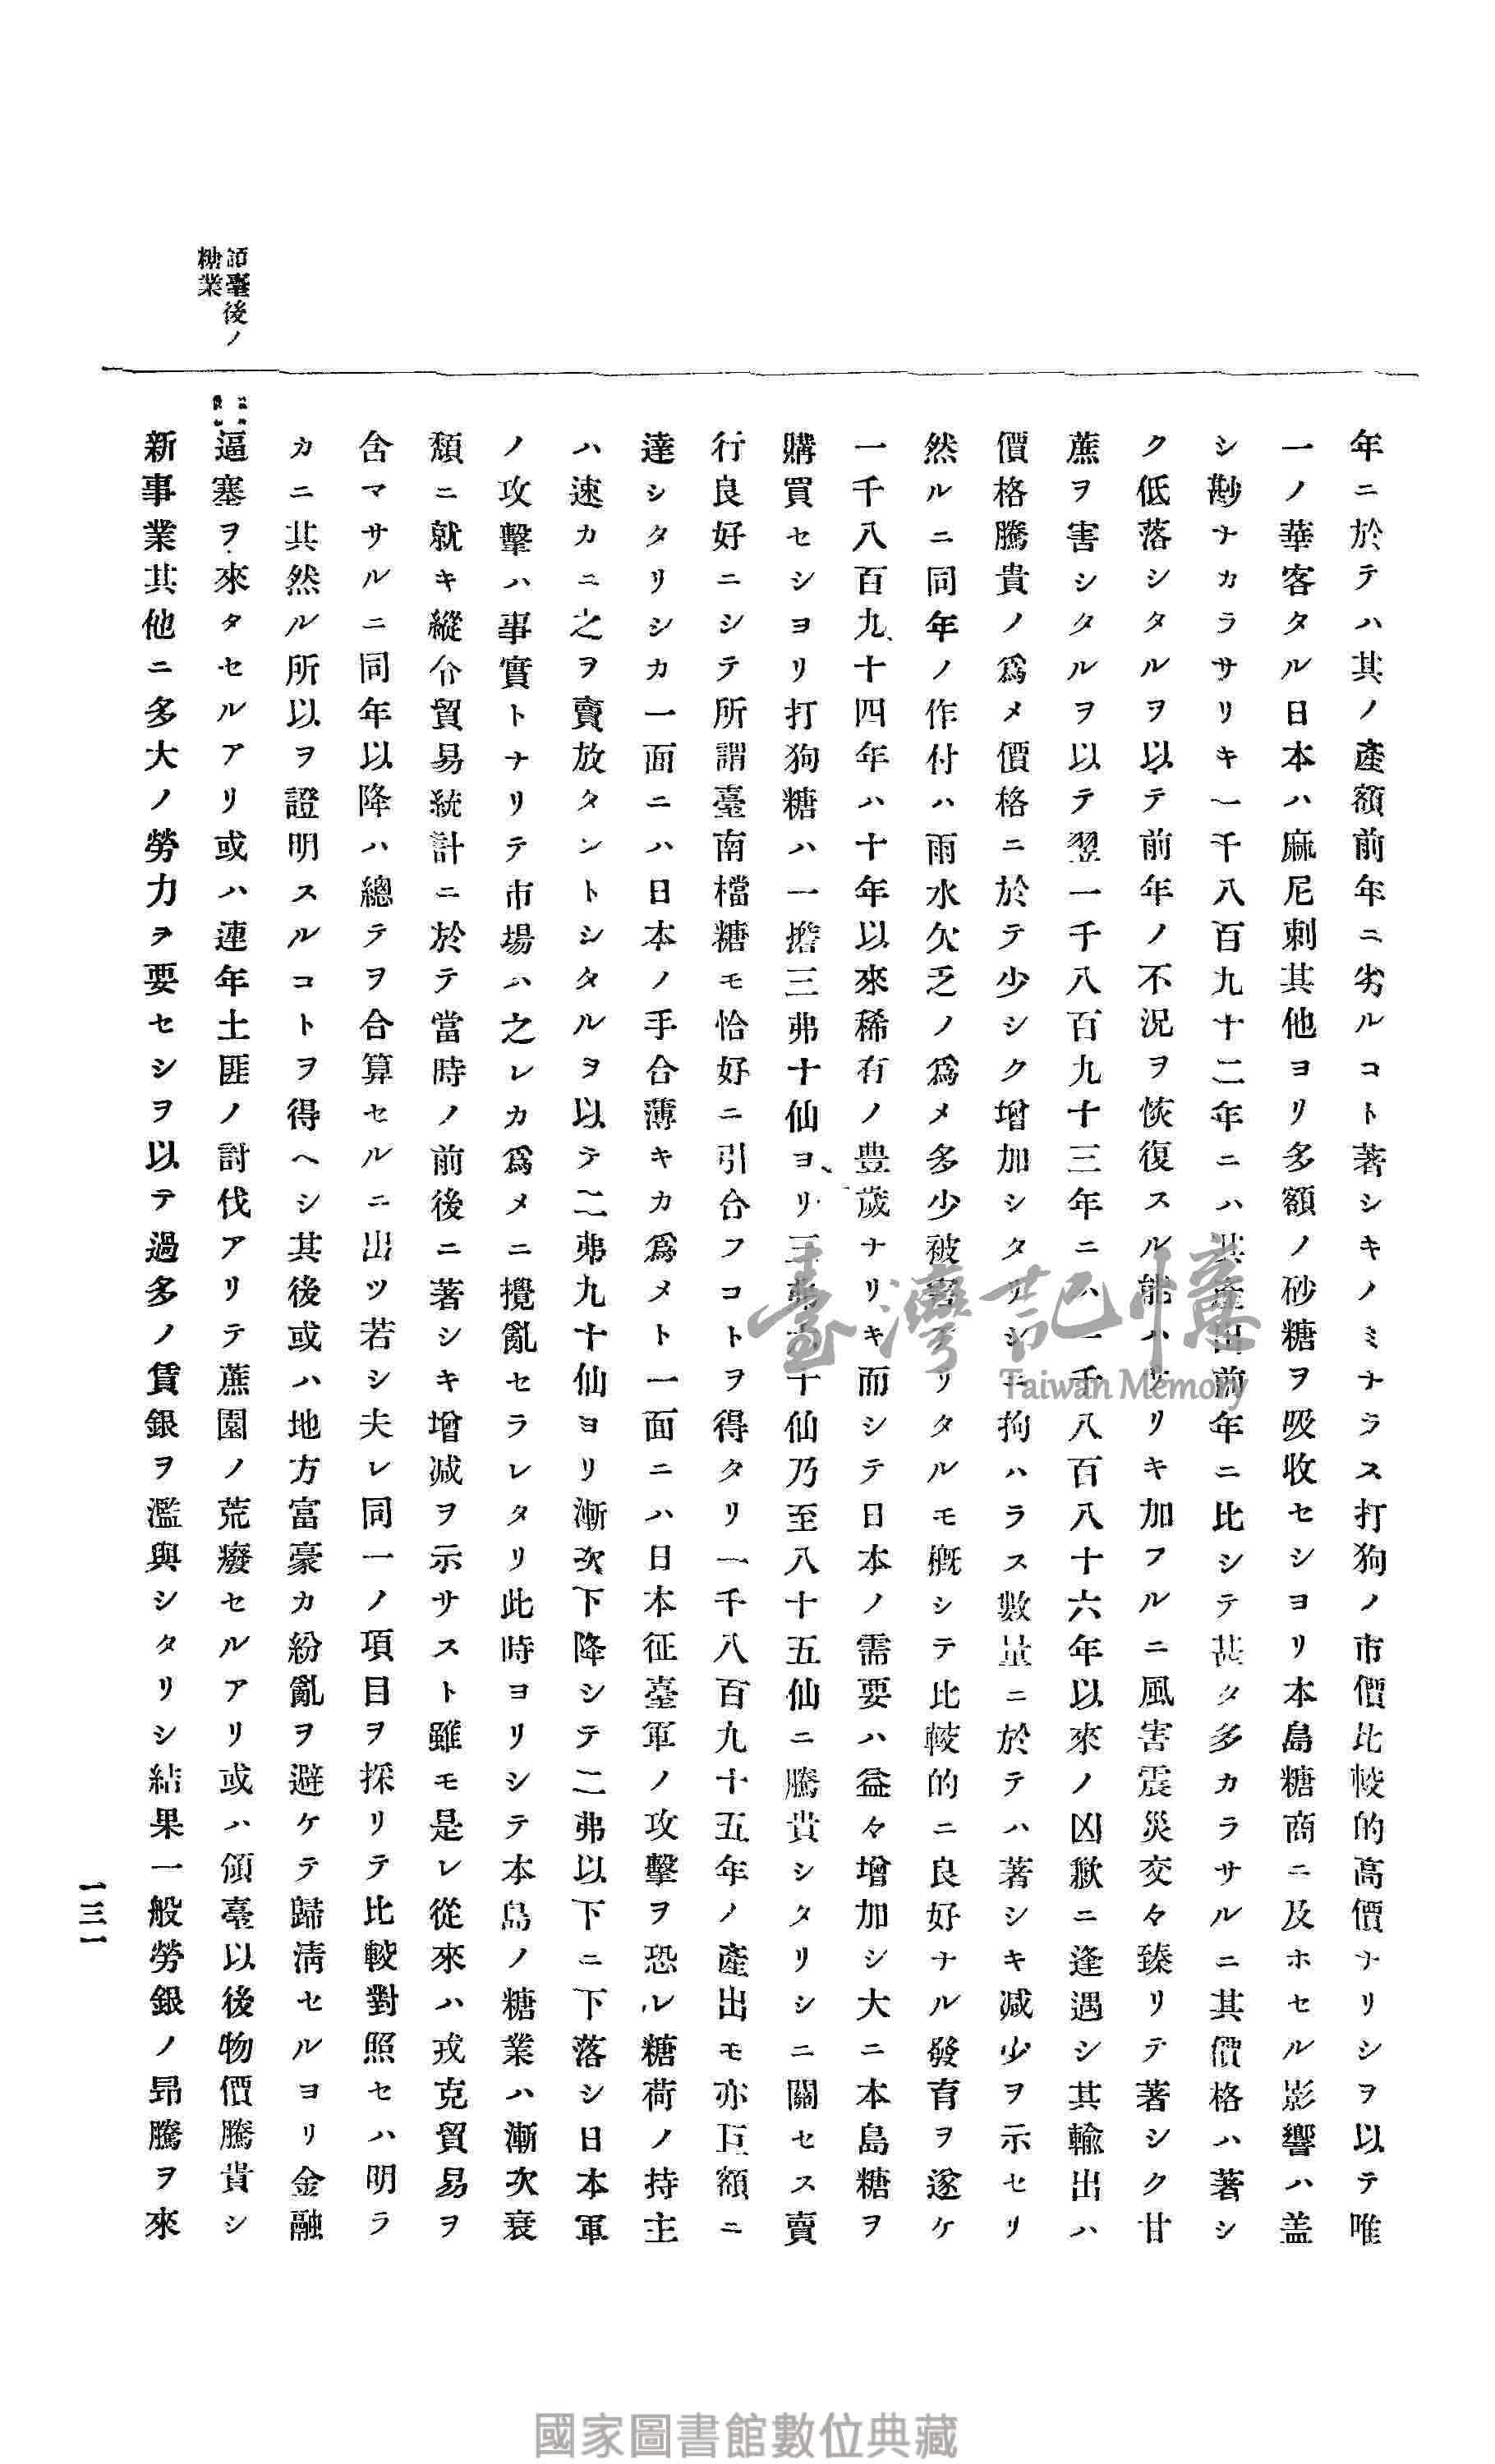 年ニ於テハ其ノ產額前年ニ劣ルコト著シキノミナラス打狗ノ市價比較的高價ナリシヲ以テ唯
一ノ華客タル日本ハ麻尼剌其他ヨリ多額ノ砂糖ヲ吸收セシヨリ本島糖商ニ及ホセル影響ハ盖
シ尠ナカラサリキ一千八百九十二年ニハ其產出前年ニ比シテ甚タ多カラサルニ其價格ハ著シ
ク低落シタルヲ以テ前年ノ不況ヲ恢復スル能ハサリキ加フルニ風害震災交々臻リテ著シク甘
蔗ヲ害シタルヲ以テ翌一千八百九十三年ニハ一千八百八十六年以來ノ凶歉ニ逢遇シ其輸出ハ
價格騰貴ノ爲メ價格ニ於テ少シク增加シタリシモ拘ハラス數量ニ於テハ著シキ减少ヲ示セリ
然ルニ同年ノ作付ハ雨水欠乏ノ爲メ多少被害アリタルモ槪シテ比較的ニ良好ナル發育ヲ遂ケ
一千八百九十四年ハ十年以來稀有ノ豊歲ナリキ而シテ日本ノ需要ハ益々增加シ大ニ本島糖ヲ
購買セシヨリ打狗糖ハ一擔三弗十仙ヨリ三弗六十仙乃至八十五仙ニ騰貴シタリシニ關セス賣
行良好ニシテ所謂臺南檔糖モ恰好ニ引合フコトヲ得タリ一千八百九十五年ノ產出モ亦巨額ニ
達シタリシカ一面ニハ日本ノ手合薄キカ爲メト一面ニハ日本征臺軍ノ攻擊ヲ恐レ糖荷ノ持主
ハ速カニ之ヲ賣放タントシタルヲ以テ二弗九十仙ヨリ漸次下降シテ二弗以下ニ下落シ日本軍
ノ攻擊ハ事實トナリテ市場ハ之レカ爲メニ攪亂セラレタリ此時ヨリシテ本島ノ糖業ハ漸次衰
頽ニ就キ縱令貿易統計ニ於テ當時ノ前後ニ著シキ增减ヲ示サスト雖モ是レ從來ハ戎克貿易ヲ
含マサルニ同年以降ハ總テヲ合算セルニ出ツ若シ夫レ同一ノ項目ヲ採リテ比較對照セハ明ラ
カニ其然ル所以ヲ證明スルコトヲ得ヘシ其後或ハ地方富豪カ紛亂ヲ避ケテ歸淸セルヨリ金融
逼塞ヲ來タセルアリ或ハ連年土匪ノ討伐アリテ蔗園ノ荒廢セルアリ或ハ領臺以後物價騰貴シ
新事業其他ニ多大ノ勞力ヲ要セシヲ以テ過多ノ賃銀ヲ濫與シタリシ結果一般勞銀ノ昂騰ヲ來
臺後ノ
糖業
一三一
臺灣記憶
Taiwan Memory
國家圖書館數位典藏